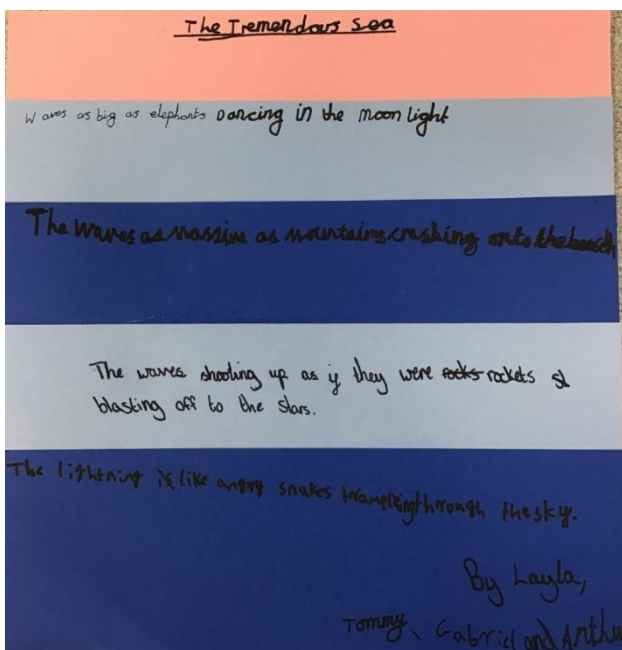 The Tremendous Sea
Waves as big as elephants Dancing in the moon light
The waves as massive as mountains crashing onto the beach
The waves shooting up as if they were rocks rockets st
blasting off to the stars.
The lightning is like angry snakes trampling through the sky.
By Layla,
Tommy, Gabriel and Arthu